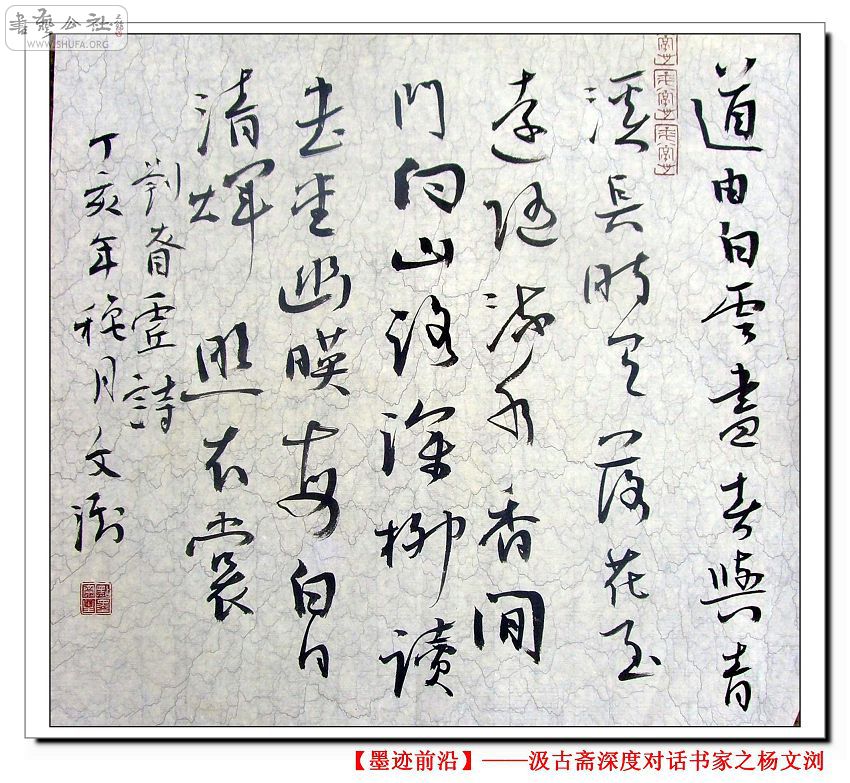 書藝公社
WWW.SHUFA.ORG
道由白雲盡春與青
溪長時有落花至
遠隨流水香間
門向山路深柳讀
書堂幽暎每白日
清煇照衣裳
劉昚虛詩
丁亥年月文浏
【墨迹前沿】——汲古斋深度对话书家之杨文浏